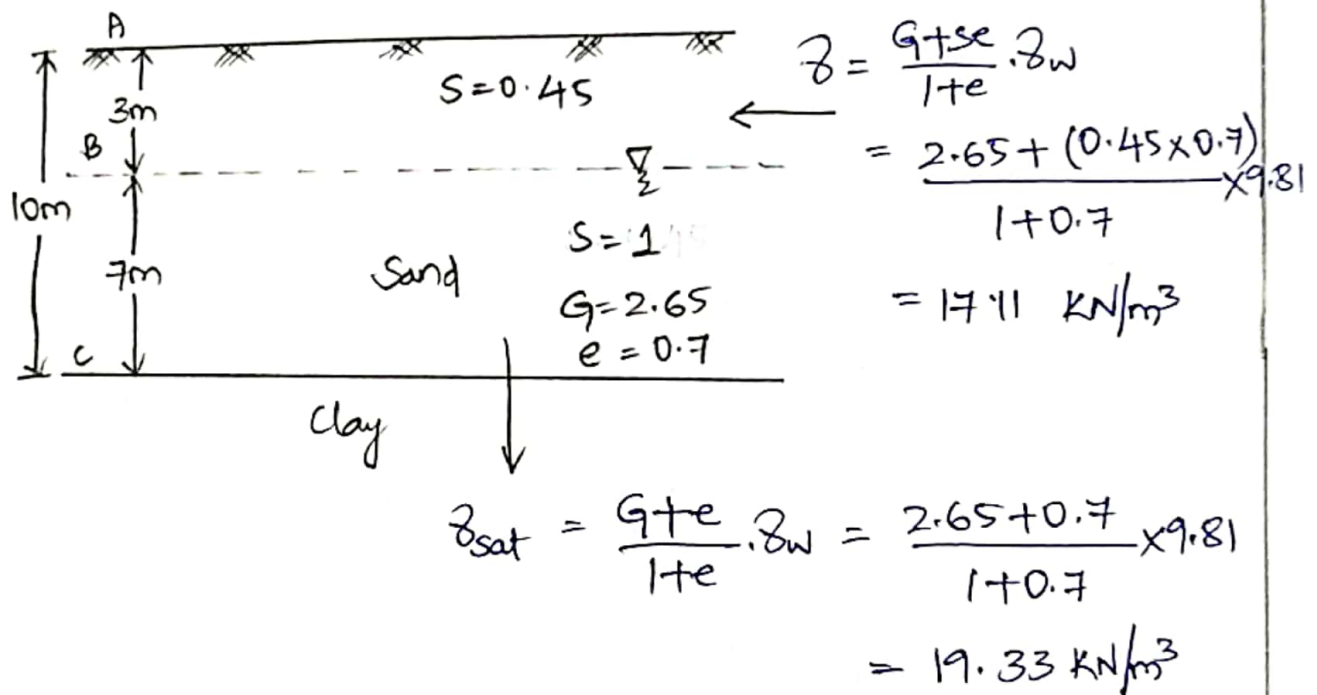 A
S=0.45
3m
B
10m
7m
Sand
S=1
G=2.65
e=0.7
C
Clay
γ = G+se/1+e .γw
= 2.65+(0.45×0.7)/1+0.7 ×9.81
= 17.11 KN/m³
γsat = G+e/1+e .γw = 2.65+0.7/1+0.7 ×9.81
= 19.33 KN/m³